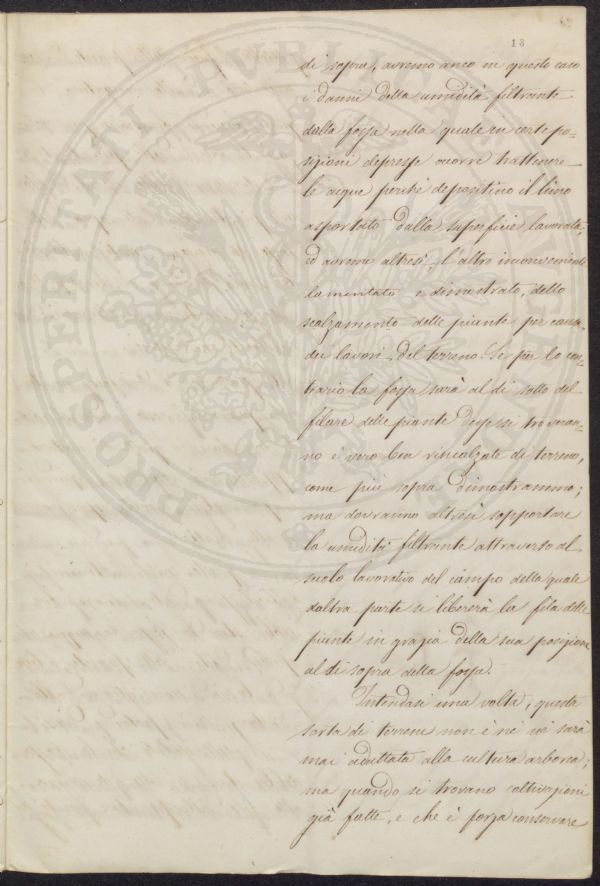 13
di sopra, avremo anco in questo caso
i danni della umidità filtrante
dalla fossa nella quale in certe po-
sizioni depresse ocorre trattenere
le acque perchè depositino il limo
asportato dalla superficie lavorata;
ed avremo altresì, l'altro inconveniente
lamentato e dimostrato, dello
scalzamento delle piante per causa
dei lavori del terreno. Se per lo con-
trario la fossa sarà al di sotto del
filare delle piante desse si troveran-
no è vero ben rincalzate di terreno,
come più sopra dimostrammo;
ma dovranno altresì sopportare
la umidità filtrante attraverso al
suolo lavorativo del campo della quale
d'altra parte si libererà la fila delle
piante in grazia della sua posizione
al di sopra della fossa.
Intendasi una volta, questa
sorta di terreni non è nè sarà
mai adattata alla cultura arborea;
ma quando si trovano coltivazioni
già fatte, e che è forza conservare
PROSPERITATI PUBLICAE